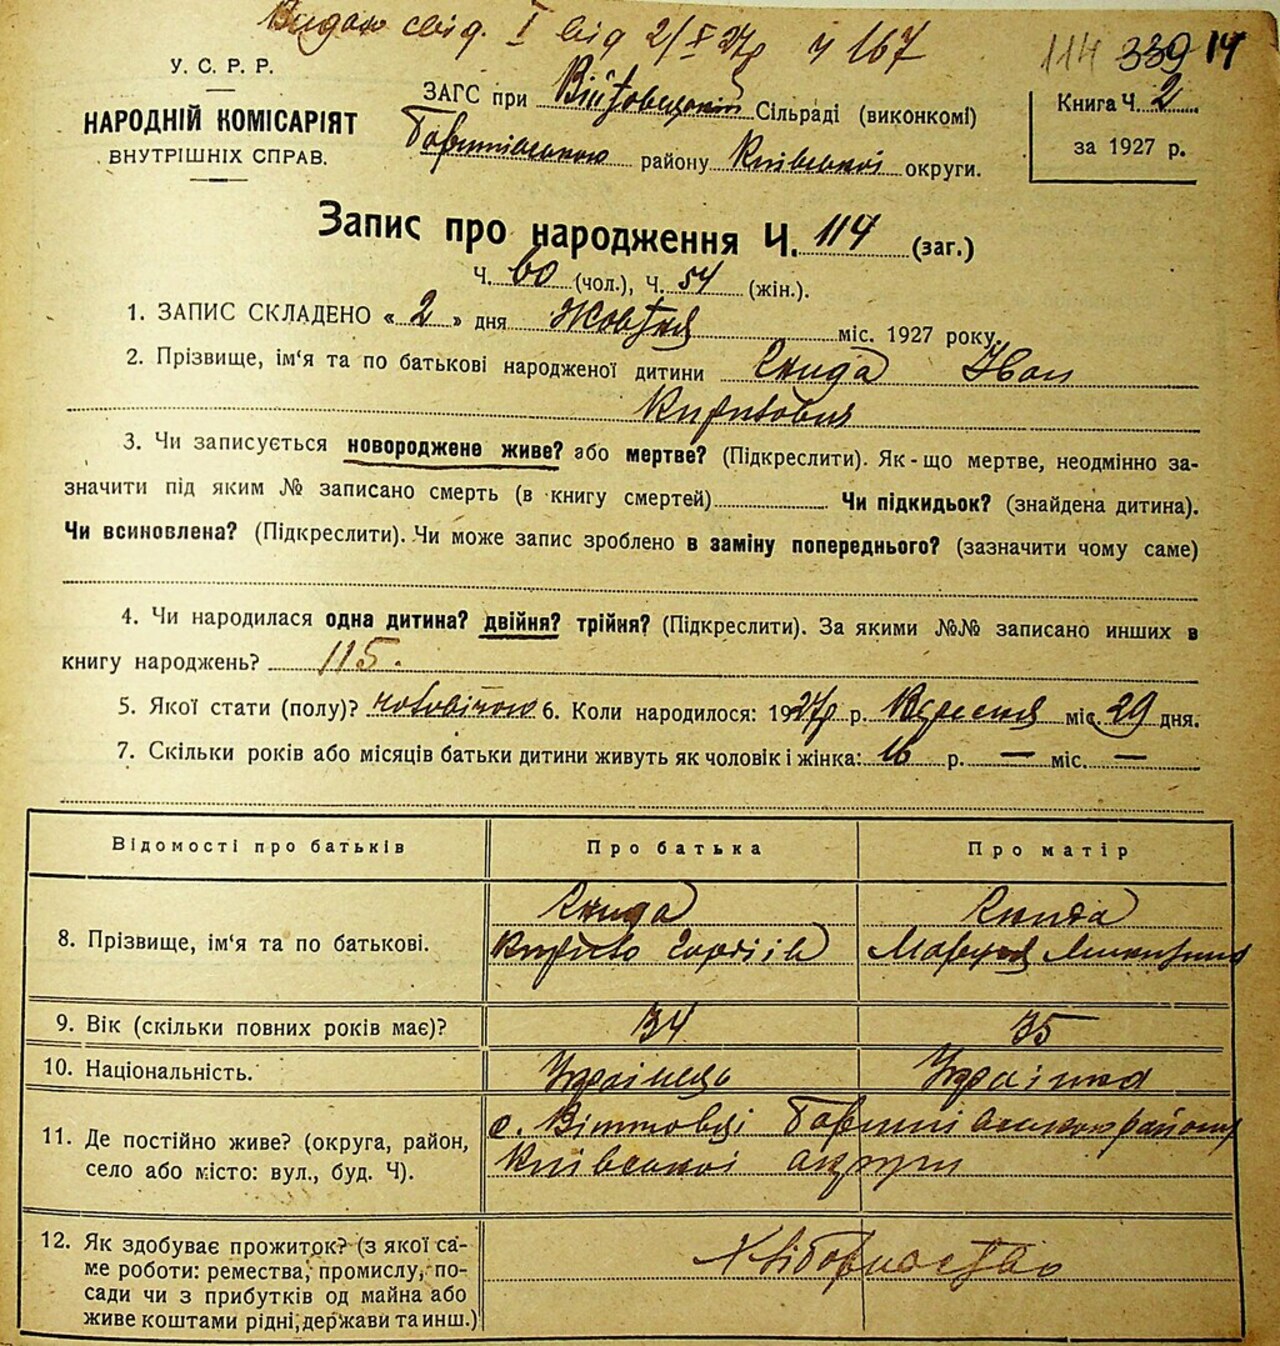 Видан свід. І від 2/X 27р ч 167
114 339 14
У. С. Р. Р.
НАРОДНІЙ КОМІСАРІЯТ
ВНУТРІШНІХ СПРАВ.
ЗАГС при Війтовецькій Сільраді (виконкомі)
району Київської округи.
Книга Ч. 2
за 1927 р.
Запис про народження Ч. 114 (заг.)
Ч. 60 (чол.), Ч. 54 (жін.).
1. ЗАПИС СКЛАДЕНО «2» дня Жовтня міс. 1927 року.
2. Прізвище, ім‘я та по батькові народженої дитини Скида Іван
Кирилович
3. Чи записується новороджене живе? або мертве? (Підкреслити). Як-що мертве, неодмінно за-
значити під яким № записано смерть (в книгу смертей) Чи підкидьок? (знайдена дитина).
Чи всиновлена? (Підкреслити). Чи може запис зроблено в заміну попереднього? (зазначити чому саме)
4. Чи народилася одна дитина? двійня? трійня? (Підкреслити). За якими №№ записано инших в
книгу народжень? 115.
5. Якої стати (полу)? чоловічої 6. Коли народилося: 1927р р. Вересня міс. 29 дня.
7. Скільки років або місяців батьки дитини живуть як чоловік і жінка: 16 р. — міс. —
Відомості про батьків Про батька Про матір
8. Прізвище, ім‘я та по батькові.
Скида Скида
Кирило Гордіїв
9. Вік (скільки повних років має)? 34 35
10. Національність. Українець Українка
11. Де постійно живе? (округа, район,
село або місто: вул., буд. Ч).
с. Війтовці району
Київської округи
12. Як здобуває прожиток? (з якої са-
ме роботи: ремества, промислу, по-
сади чи з прибутків од майна або
живе коштами рідні, держави та инш.)
Хліборобство